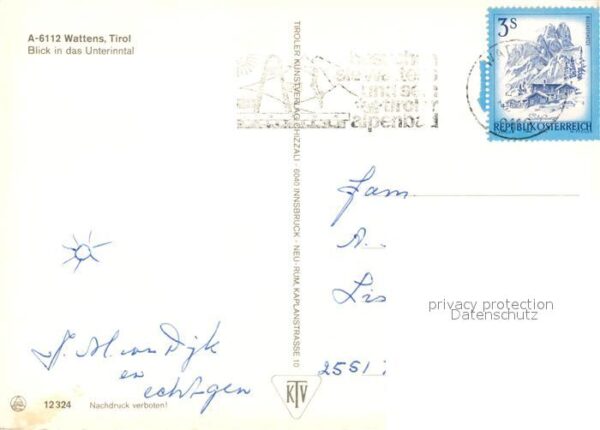 A-6112 Wattens, Tirol
Blick in das Unterinntal
3 S
REPUBLIK ÖSTERREICH
TIROLER KUNSTVERLAG CHIZZALI - 6040 INNSBRUCK - NEU-RUM, KAPLANSTRASSE 10
und
tiroler
alpenba
Fam.
A.
Lis
2551
privacy protection
Datenschutz
J. M. van Dijk
en
echtgen
KTV
12324 Nachdruck verboten!